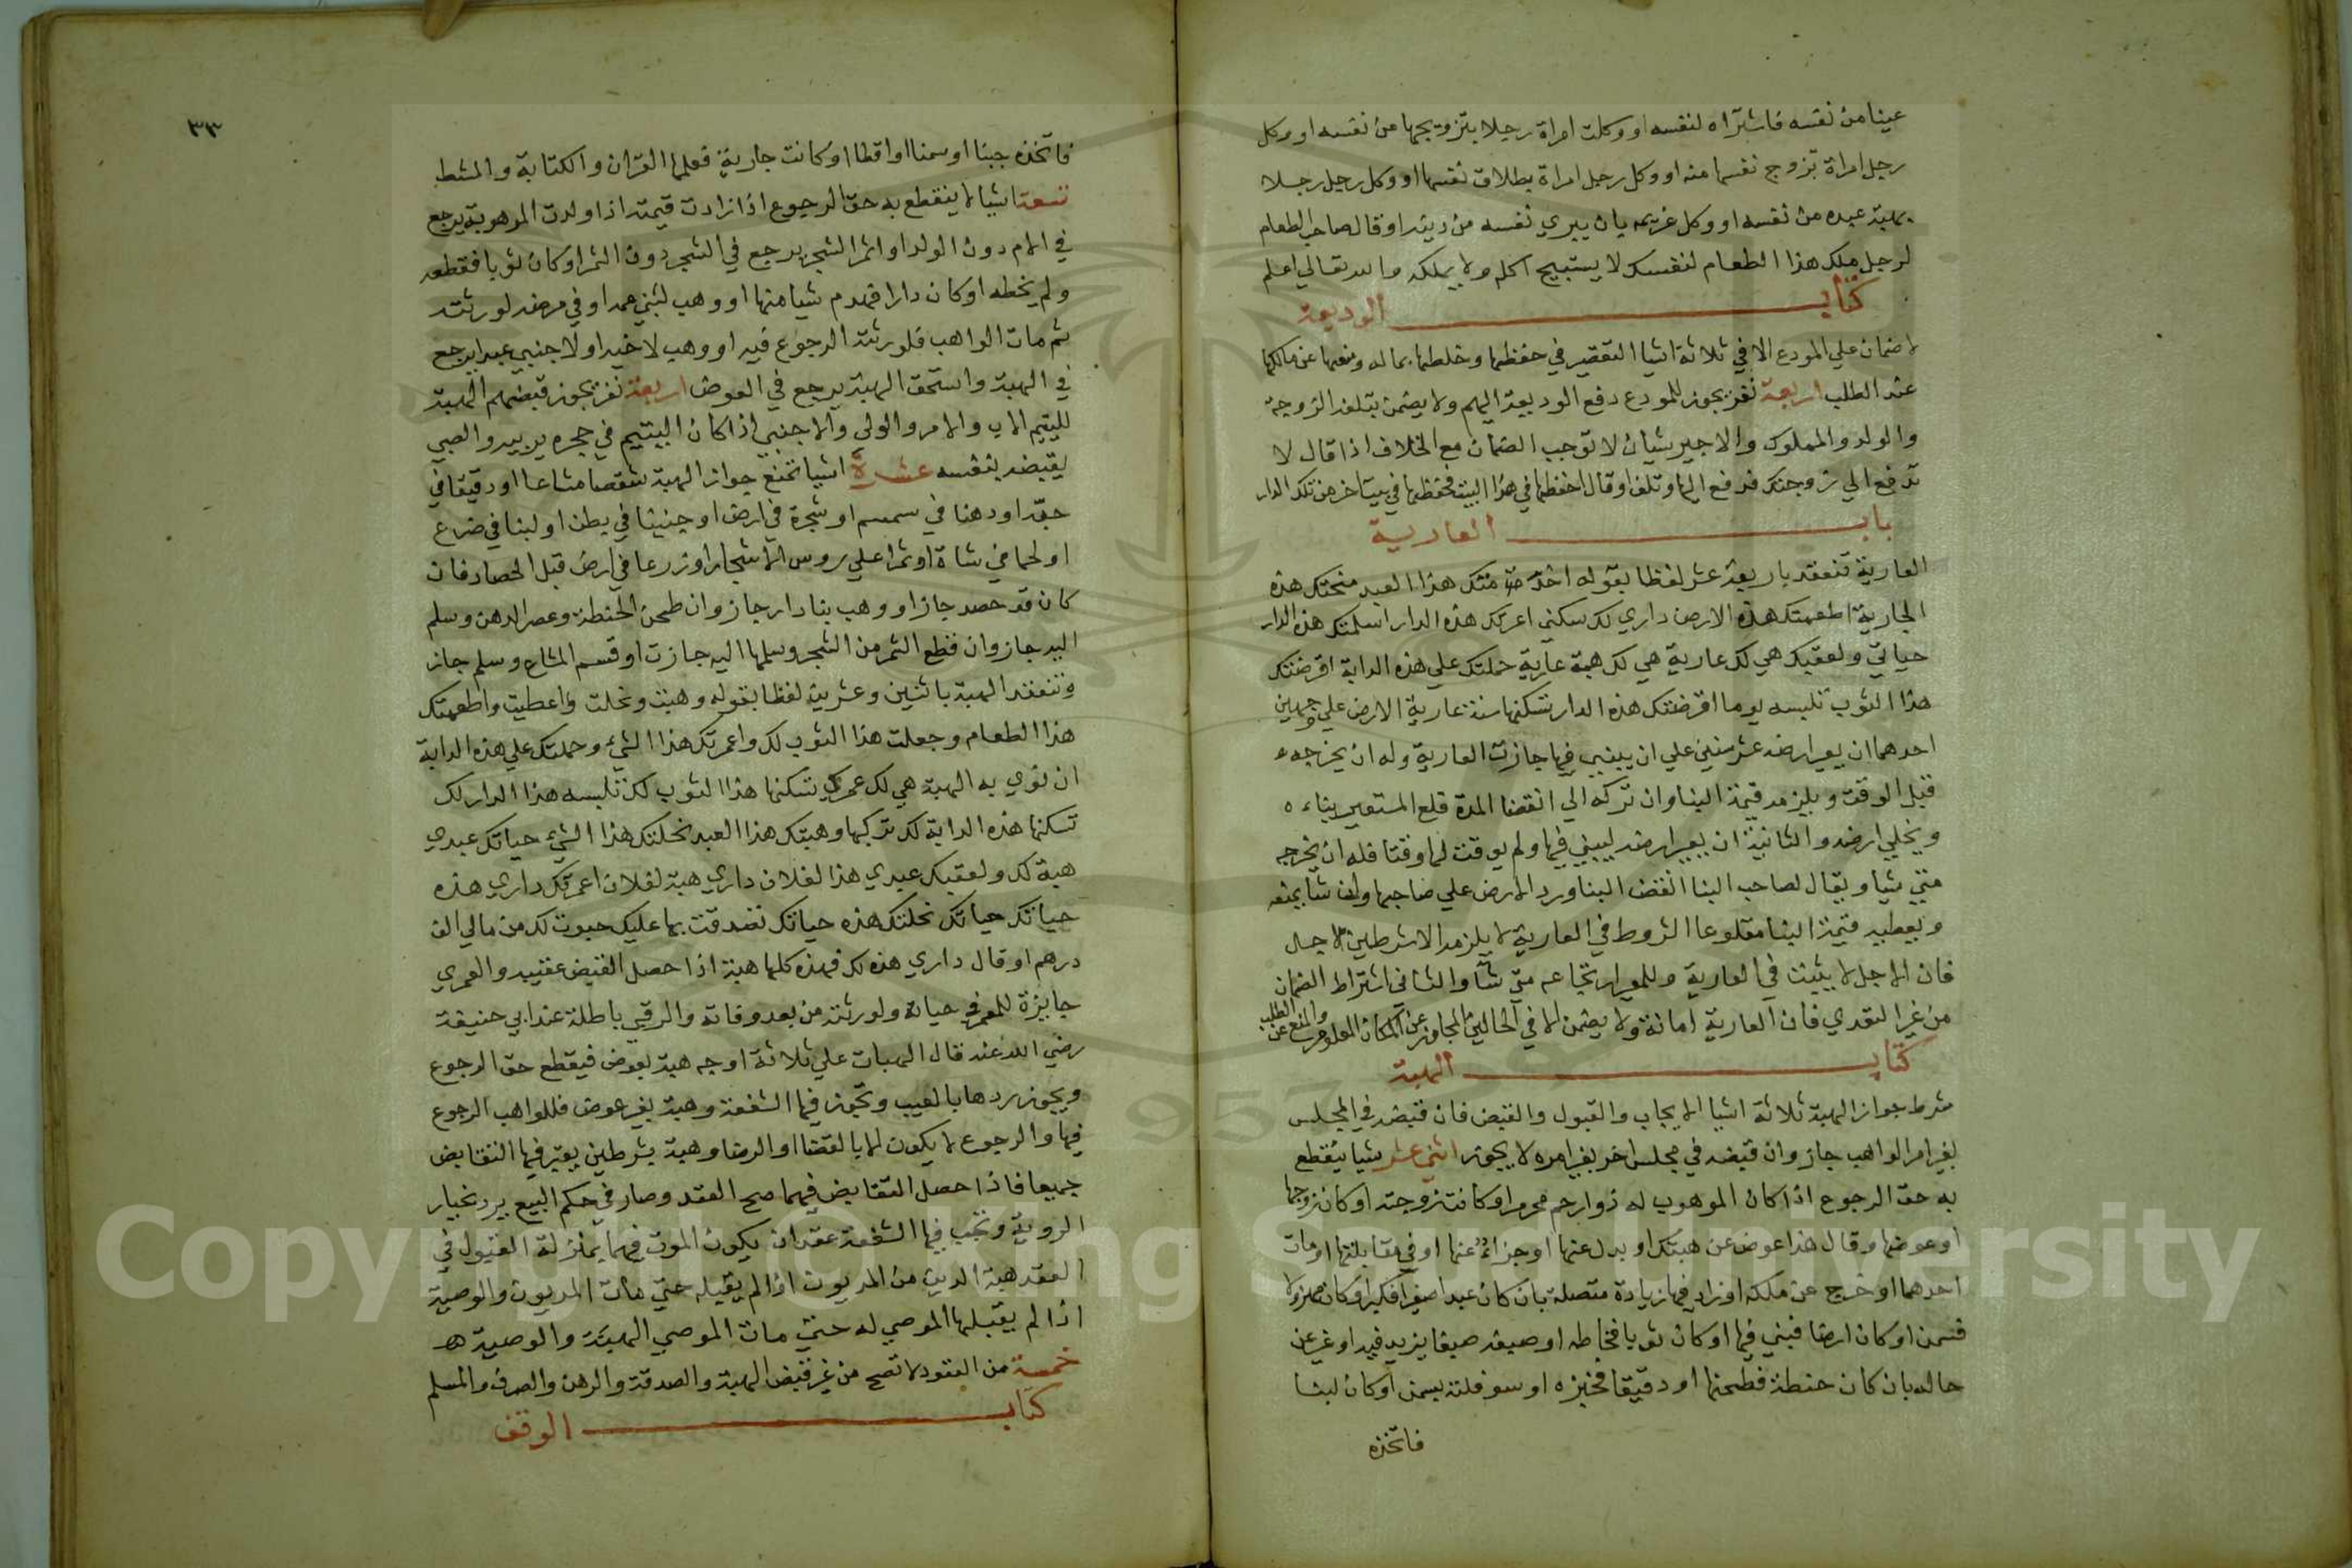 عينا من نفسه فاشتراه لنفسه او وكلت امراة رجلا بتزويجها من نفسه او وكل
رجل امراة تزوج نفسها منه او وكل رجل امراة بطلاق نفسها او وكل رجل رجلا
بهبة عبده من نفسه او وكل غريمه بان يبري نفسه من دينه او قال صاحب الطعام
لرجل ملك هذا الطعام لنفسك لا يستبيح اكله ولا يملكه والله تعالي اعلم
كتاب الوديعة
لا ضمان علي المودع الا في ثلاثة اشيا التقصير في حفظها وخلطها بماله ومنعها عن مالكها
عند الطلب اربعة نفر يجوز للمودع دفع الوديعة اليهم ولا يضمن بتلفه الزوجة
والولد والمملوك والاجير شيان لا توجب الضمان مع الخلاف اذا قال لا
تدفع الي زوجتك فدفع اليها وتلف او قال احفظها في هذا البيت فحفظها في بيت اخر من تلك الدار
باب العارية
العارية تنعقد باربعة عشر لفظا بقوله اخدمتك هذا العبد منحتك هذه
الجارية اطعمتك هذه الارض داري لك سكني اعرتك هذه الدار اسكنتك هذه الدار
حياتي ولعقبك هي لك عارية هي لك هبة عارية حملتك علي هذه الدابة اقرضتك
هذا الثوب تلبسه يوما اقرضتك هذه الدار تسكنها سنة عارية الارض علي وجهين
احدهما ان يعير ارضه عشر سنين علي ان يبني فيها جازت العارية وله ان يخرجه
قبل الوقت ويلزمه قيمة البنا وان تركه الي انقضا المدة قلع المستعير بناءه
ويخلي ارضه والثانية ان يعير ارضه ليبني فيها ولم يوقت لها وقتا فله ان يخرجه
متي شيا ويقال لصاحب البنا انقض البنا ورد الارض علي صاحبها وان شا يمنعه
ويعطيه قيمة البنا مقلوعا الشروط في العارية لا يلزمه الا شرطين الاجل
فان الاجل لا يثبت في العارية وللمعير ارتجاعه متي شا والثاني اشتراط الضمان
من غير التعدي فان العارية امانة ولا يضمن الا في الحالين المجاوز عن المكان المعلوم والمنع عن الطلب
كتاب الهبة
شرط جواز الهبة ثلاثة اشيا الايجاب والقبول والقبض فان قبض في المجلس
بغير امر الواهب جاز وان قبضه في مجلس اخر بغير امره لا يجوز اثني عشر شيا ينقطع
به حق الرجوع اذا كان الموهوب له ذوارحم محرم او كانت زوجته او كان زوجها
او عوضها وقال هذا عوض عن هبتك او بدل عنها او جزاء عنها او في مقابلتها او مات
احدهما او خرج عن ملكه او زاد فيها زيادة متصلة بان كان عبدا صغيرا فكبر او كان مهزولا
فسمن او كان ارضا فبني فيها او كان ثوبا فخاطه او صبغه صبغا يزيد فيه او غير عن
حاله بان كان حنطة فطحنها او دقيقا فخبزه او سوفلته بسمن او كان لبنا
فاتخذه
٣٣
فاتخذه جبنا او سمنا او اقطا او كانت جارية فعلمها القران والكتابة والمشط
تسعة اشيا لا ينقطع به حق الرجوع اذا زادت قيمته اذا ولدت الموهوبة يرجع
في الام دون الولد او اثمر الشجر يرجع في الشجر دون الثمر او كان ثوبا فقطعه
ولم يخطه او كان دارا فهدم شيا منها او وهب لبني عمه او في مرضه لورثته
ثم مات الواهب فلورثته الرجوع فيه او وهب لاخيه او لاجنبي عبدا يرجع
في الهبة واستحق الهبة يرجع في العوض اربعة نفر يجوز قبضهم الهبة
لليتيم الاب والام والولي والاجنبي اذا كان اليتيم في حجره يربيه والصبي
يقبضه بنفسه عشرة اشيا تمنع جواز الهبة شقصا مشاعا او دقيقا في
حبه او دهنا في سمسم او شجرة في ارض او جنينا في بطن او لبنا في ضرع
او لحما في شاة او ثمرا علي روس الاشجار او زرعا في ارض قبل الحصاد فان
كان قد حصد جاز او وهب بنا دار جاز وان طحن الحنطة وعصر الدهن وسلم
اليه جاز وان قطع الثمر من الشجر وسلمها اليه جازت او قسم المشاع وسلم جاز
وتنعقد الهبة باثنين وعشرين لفظا بقوله وهبت ونحلت واعطيت واطعمتك
هذا الطعام وجعلت هذا الثوب لك واعمرتك هذا الشئ وحملتك علي هذه الدابة
ان نوي به الهبة هي لك عمري تسكنها هذا الثوب لك تلبسه هذا الدار لك
تسكنها هذه الدابة لك تركبها وهبتك هذا العبد نحلتك هذا الشئ حياتك عبدي
هبة لك ولعقبك عبدي هذا لفلان داري هبة لفلان اعمرتك داري هذه
حياتك حياتك نحلتك هذه حياتك تصدقت بها عليك حبوت لك من مالي الف
درهم او قال داري هذه لك فهذه كلها هبة اذا حصل القبض عقيبه والعمري
جايزة للمعمر في حياته ولورثته من بعد وفاته والرقبي باطلة عند ابي حنيفة
رضي الله عنه قال الهبات علي ثلاثة اوجه هبة بعوض فيقطع حق الرجوع
ويجوز ردها بالعيب وتجوز فيها الشفعة وهبة بغير عوض فللواهب الرجوع
فيها والرجوع لا يكون الا بالقضا او الرضا وهبة بشرطين يعتبر فيها التقابض
جميعا فاذا حصل التقابض فيهما صح العقد وصار في حكم البيع يرد بخيار
الروية وتجب فيها الشفعة عقدان يكون الموت فيهما بمنزلة القبول في
العقد هبة الدين من المديون اذا لم يقبله حتي مات المديون والوصية
اذا لم يقبلها الموصي له حتي مات الموصي الهبة والوصية هـ
خمسة من العقود لا تصح من غير قبض الهبة والصدقة والرهن والصرف والسلم
كتاب الوقف
Copyright © King Saud University